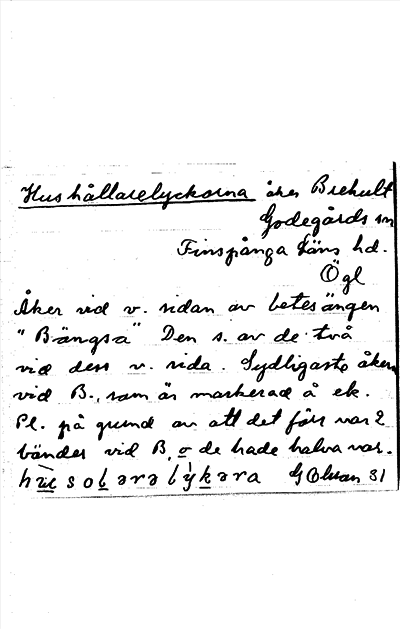 Hushållarelyckorna åker Brehult
Godegårds sn
Finspånga Läns hd.
Ögl
Åker vid v. sidan av betesängen
"Bängsa" Den s. av de två
vid dess v. sida. Sydligaste åkern
vid B., som är markerad å ek.
Pl. på grund av att det förr var 2
bönder vid B. o de hade halva var.
G Olson 31